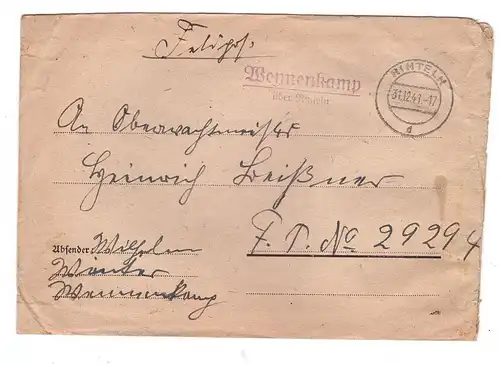 Feldpost
Wennenkamp
über Rinteln
RINTELN
31.12.41.-17
d
An Oberwachtmeister
Heinrich Beißner
F. P. No 29294
Absender Wilhelm
Winter
Wennenkamp